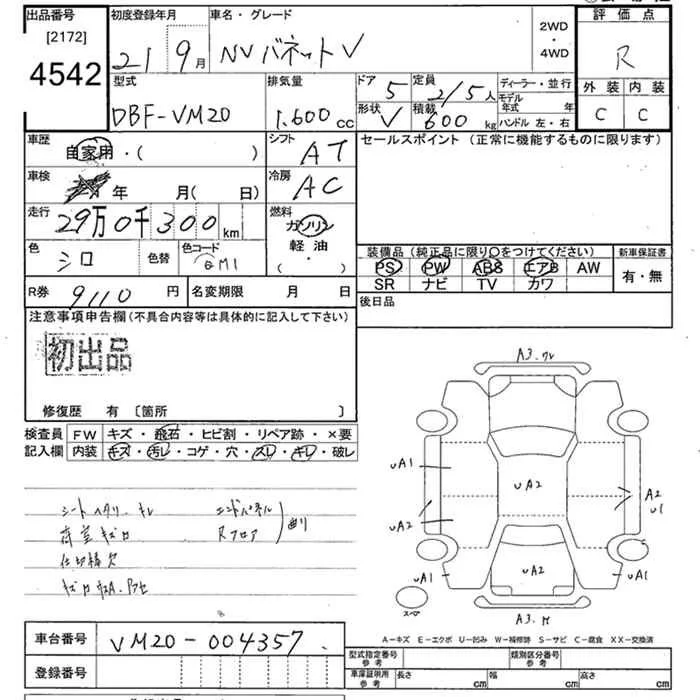 出品番号 初度登録年月 車名・グレード 評価点
[2172] 21 9月 NVバネット V 2WD・4WD R
4542 型式 排気量 ドア 5 定員 2/5人 ディーラー・並行 外装 内装
DBF-VM20 1.600cc 形状 V 積載 600kg モデル年式 年 C C
ハンドル 左・右
車歴 自家用・( ) シフト AT セールスポイント (正常に機能するものに限ります)
車検 年 月( 日) 冷房 AC
走行 29万0千300km 燃料 ガソリン
軽油・( )
色 シロ 色替 色コード QM1
装備品 (純正品に限り○をつけてください) 新車保証書
PS PW ABS エアB AW 有・無
SR ナビ TV カワ
R券 9110円 名変期限 月 日 後日品
注意事項申告欄(不具合内容等は具体的に記入して下さい)
初出品
修復歴 有 〔箇所 〕
検査員 FW キズ・飛石・ヒビ割・リペア跡・×要
記入欄 内装 キズ・汚レ・コゲ・穴・スレ・キレ・破レ
シートヘタリ・キレ エンドパネル
荷室キズ凹 Rフロア 曲り
仕切棒欠
A3.
UA1 UA2 A2
UA2 U1
UA1 UA2 UA1
スペア
A3.
A−キズ E−エクボ U−凹み W−補修跡 S−サビ C−腐食 XX−交換済
車台番号 VM20-004357
登録番号
型式指定番号 参考 類別区分番号 参考
車庫証明用 参考 長さ cm 幅 cm 高さ cm